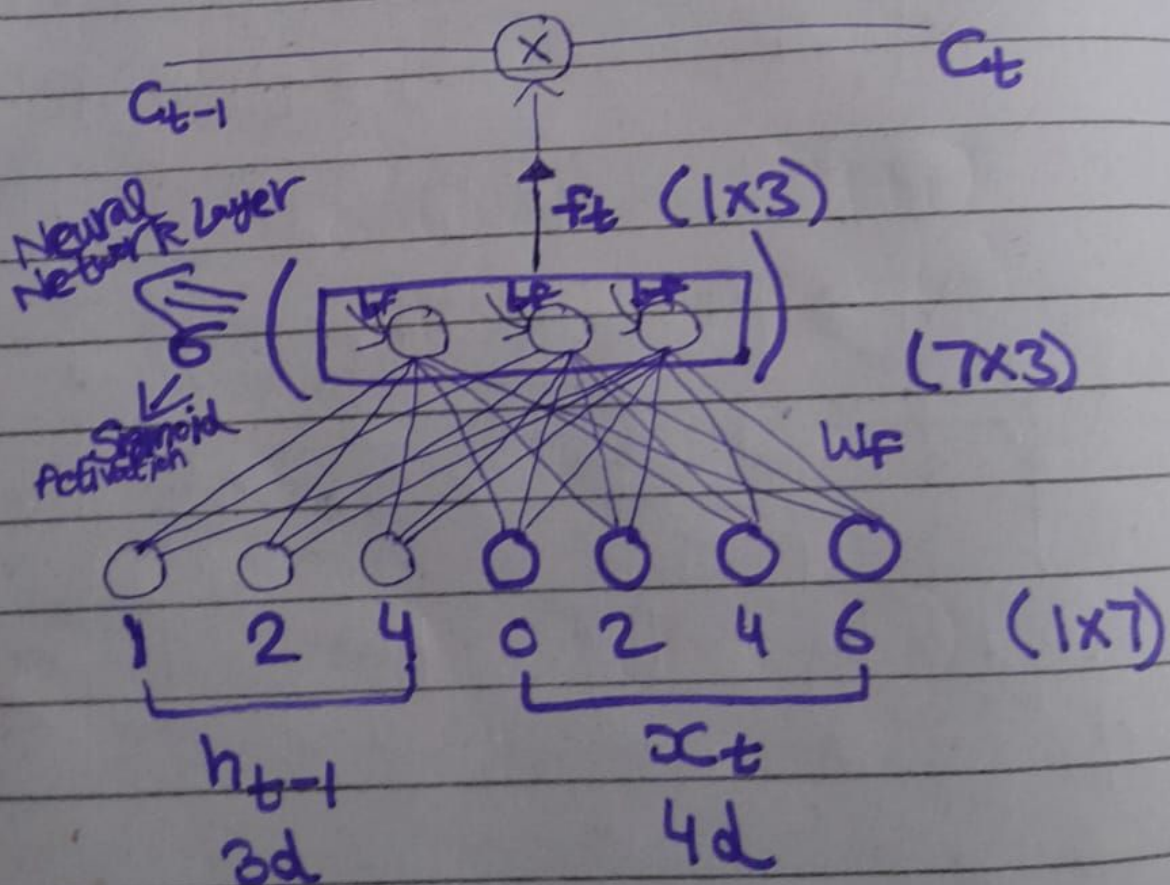 X
C_t-1
C_t
Neural
Network Layer
f_t (1×3)
( bf bf bf )
σ
(7×3)
Sigmoid
Activation
Wf
1 2 4 0 2 4 6 (1×7)
h_t-1 x_t
3d 4d